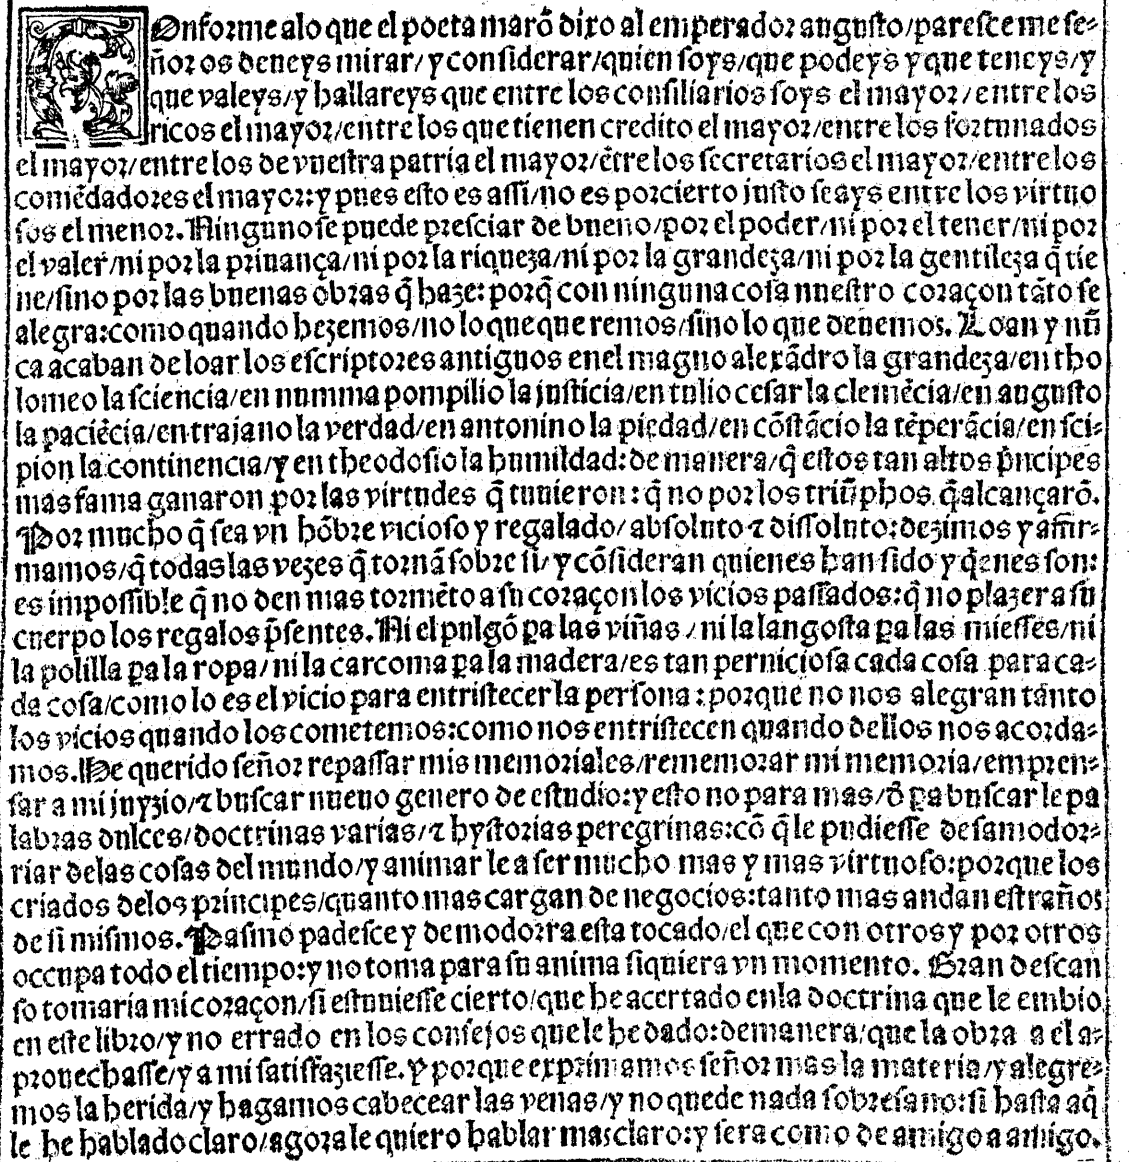 COnforme alo que el poeta marõ dixo al emperador augusto/paresce me se-
ñor os deueys mirar/ y considerar/quien soys/que podeys y que teneys/y
que valeys/y hallareys que entre los consiliarios soys el mayor/entre los
ricos el mayor/entre los que tienen credito el mayor/entre los fortunados
el mayor/entre los de vuestra patria el mayor/ẽtre los secretarios el mayor/entre los
comẽdadores el mayor:y pues esto es assi/no es porcierto justo seays entre los virtuo
sos el menor. Ninguno se puede presciar de bueno/por el poder/ni por el tener/ni por
el valer/ni por la priuança/ni por la riqueza/ni por la grandeza/ni por la gentileza q̃ tie
ne/sino por las buenas obras q̃ haze: porq̃ con ninguna cosa nuestro coraçon tãto se
alegra:como quando hezemos/no lo que queremos/sino lo que deuemos. Loan y nũ
ca acaban de loar los escriptores antiguos enel magno alexãdro la grandeza/en tho
lomeo la sciencia/en numma pompilio la justicia/en tulio cesar la clemẽcia/en augusto
la paciẽcia/en trajano la verdad/en antonino la piedad/en cõstãcio la tẽperãcia/en sci-
pion la continencia/y en theodosio la humildad: de manera/q̃ estos tan altos p̃ncipes
mas fama ganaron por las virtudes q̃ tuuieron: q̃ no por los triũphos q̃ alcançarõ.
Por mucho q̃ sea vn hõbre vicioso y regalado/ absoluto ⁊ dissoluto: dezimos y affir-
mamos/q̃ todas las vezes q̃ tornã sobre si/ y cõsideran quienes han sido y q̃enes son:
es impossible q̃ no den mas tormẽto a su coraçon los vicios passados: q̃ no plazer a su
cuerpo los regalos p̃sentes. Ni el pulgõ ꝑa las viñas/ ni la langosta ꝑa las miesses/ni
la polilla ꝑa la ropa/ ni la carcoma ꝑa la madera/es tan perniciosa cada cosa para ca-
da cosa/como lo es el vicio para entristecer la persona: porque no nos alegran tanto
los vicios quando los cometemos:como nos entristecen quando dellos nos acorda-
mos. He querido señor repassar mis memoriales/rememorar mi memoria/empren-
sar a mi juyzio/⁊ buscar nueuo genero de estudio:y esto no para mas/õ ꝑa buscar le pa
labras dulces/doctrinas varias/⁊ hystorias peregrinas:cõ q̃ le pudiesse desamodor-
riar delas cosas del mundo/y animar le a ser mucho mas y mas virtuoso:porque los
criados delos principes/quanto mas cargan de negocios:tanto mas andan estraños
de si mismos. Pasmo padesce y de modorra esta tocado/el que con otros y por otros
occupa todo el tiempo:y no toma para su anima siquiera vn momento. Gran descan
so tomaria mi coraçon/si estuuiesse cierto/que he acertado enla doctrina que le embio
en este libro/y no errado en los consejos que le he dado:demanera/que la obra a el a-
prouechasse/y a mi satisfaziesse. Y porque exprimamos señor mas la materia/y alegre-
mos la herida/y hagamos cabecear las venas/y no quede nada sobresano: si hasta aq̃
le he hablado claro/agora le quiero hablar mas claro:y sera como de amigo a amigo.